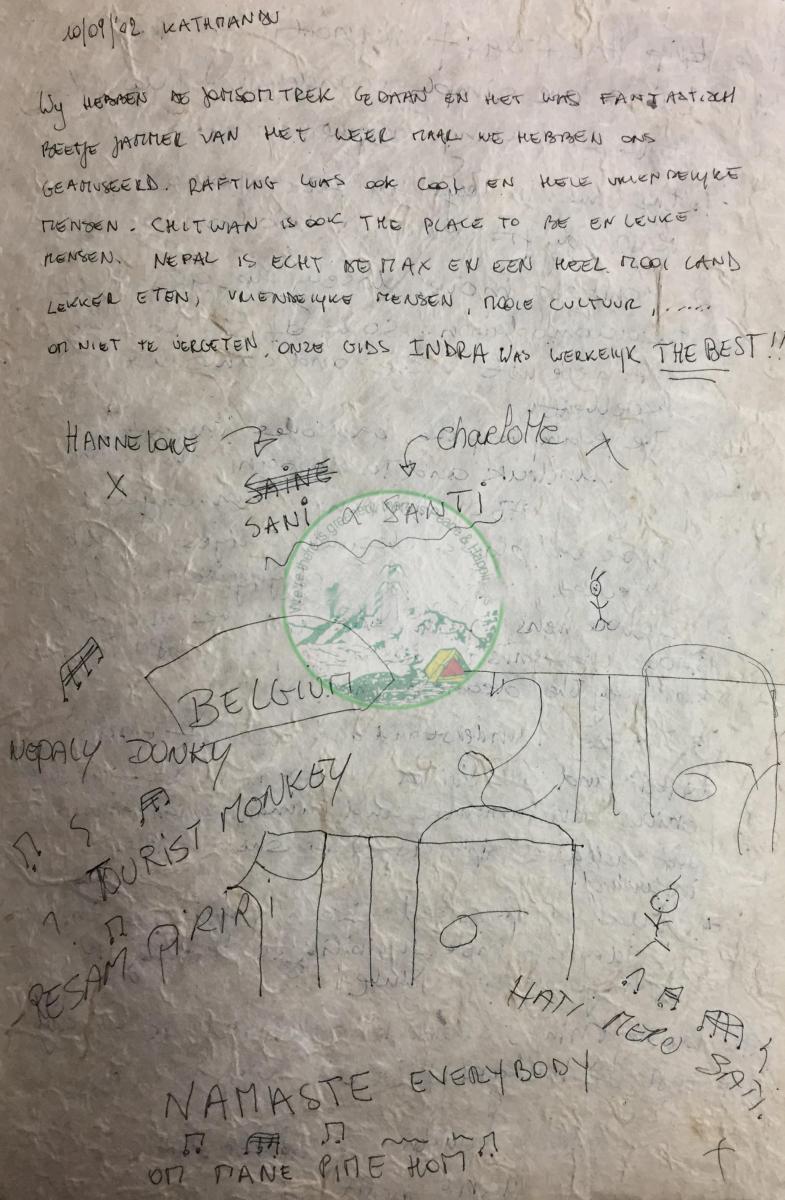 10/09/'02 KATHMANDU
Wij HEBBEN DE JOMSOM TREK GEDAAN EN HET WAS FANTASTISCH
BEETJE JAMMER VAN HET WEER MAAR WE HEBBEN ONS
GEAMUSEERD. RAFTING WAS OOK COOL EN HELE VRIENDELIJKE
MENSEN. CHITWAN IS OOK THE PLACE TO BE EN LEUKE
MENSEN. NEPAL IS ECHT DE MAX EN EEN HEEL MOOI LAND
LEKKER ETEN, VRIENDELIJKE MENSEN, MOOIE CULTUUR, ......
OM NIET TE VERGETEN, ONZE GIDS INDRA WAS WERKELIJK THE BEST!!
HANNELORE
Charlotte
X
X
SAINE
SANI & SANTI
We're there is greenery, there is Peace &
BELGIUM
NEPALY DONKY
TOURIST MONKEY
RESAM PIRIRI
HATI MERO SATI.
NAMASTE EVERYBODY
OM MANE PIME HOM